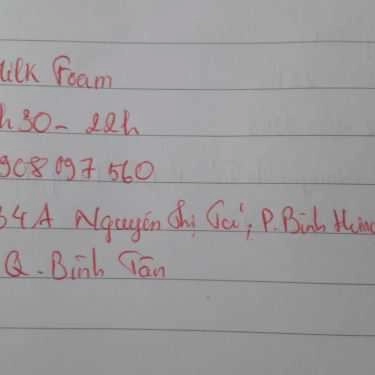 ilk Foam
h30 - 22h
908 097 560
34A Nguyễn Thị Tú, P. Bình Hưng
Q. Bình Tân